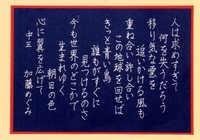 人は求めすぎて
何を失うだろう
移り気な愛を
追いかける風も
重ね合い許し合い
この地球を回せば
きっと青い鳥
誰もがすぐに
見つけるのさ
今も世界のどこかで
生まれゆく
朝日の色
心に翼を広げて
中三 加藤めぐみ